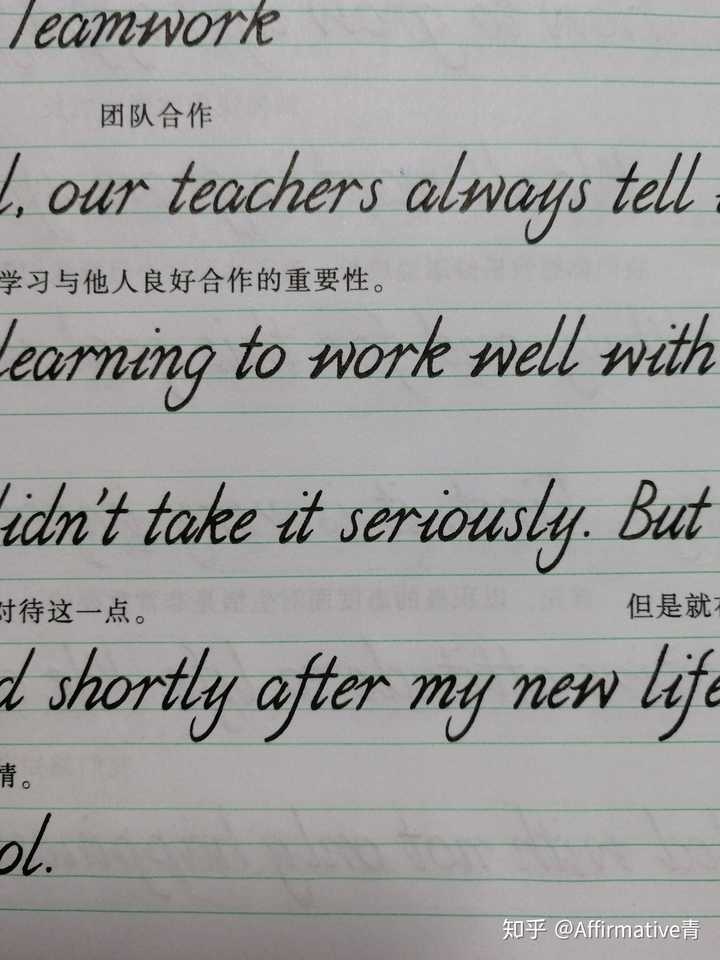 Teamwork
团队合作
l, our teachers always tell
学习与他人良好合作的重要性。
learning to work well with
didn't take it seriously. But
对待这一点。 但是就在
d shortly after my new life
情。
ol.
知乎 @Affirmative青